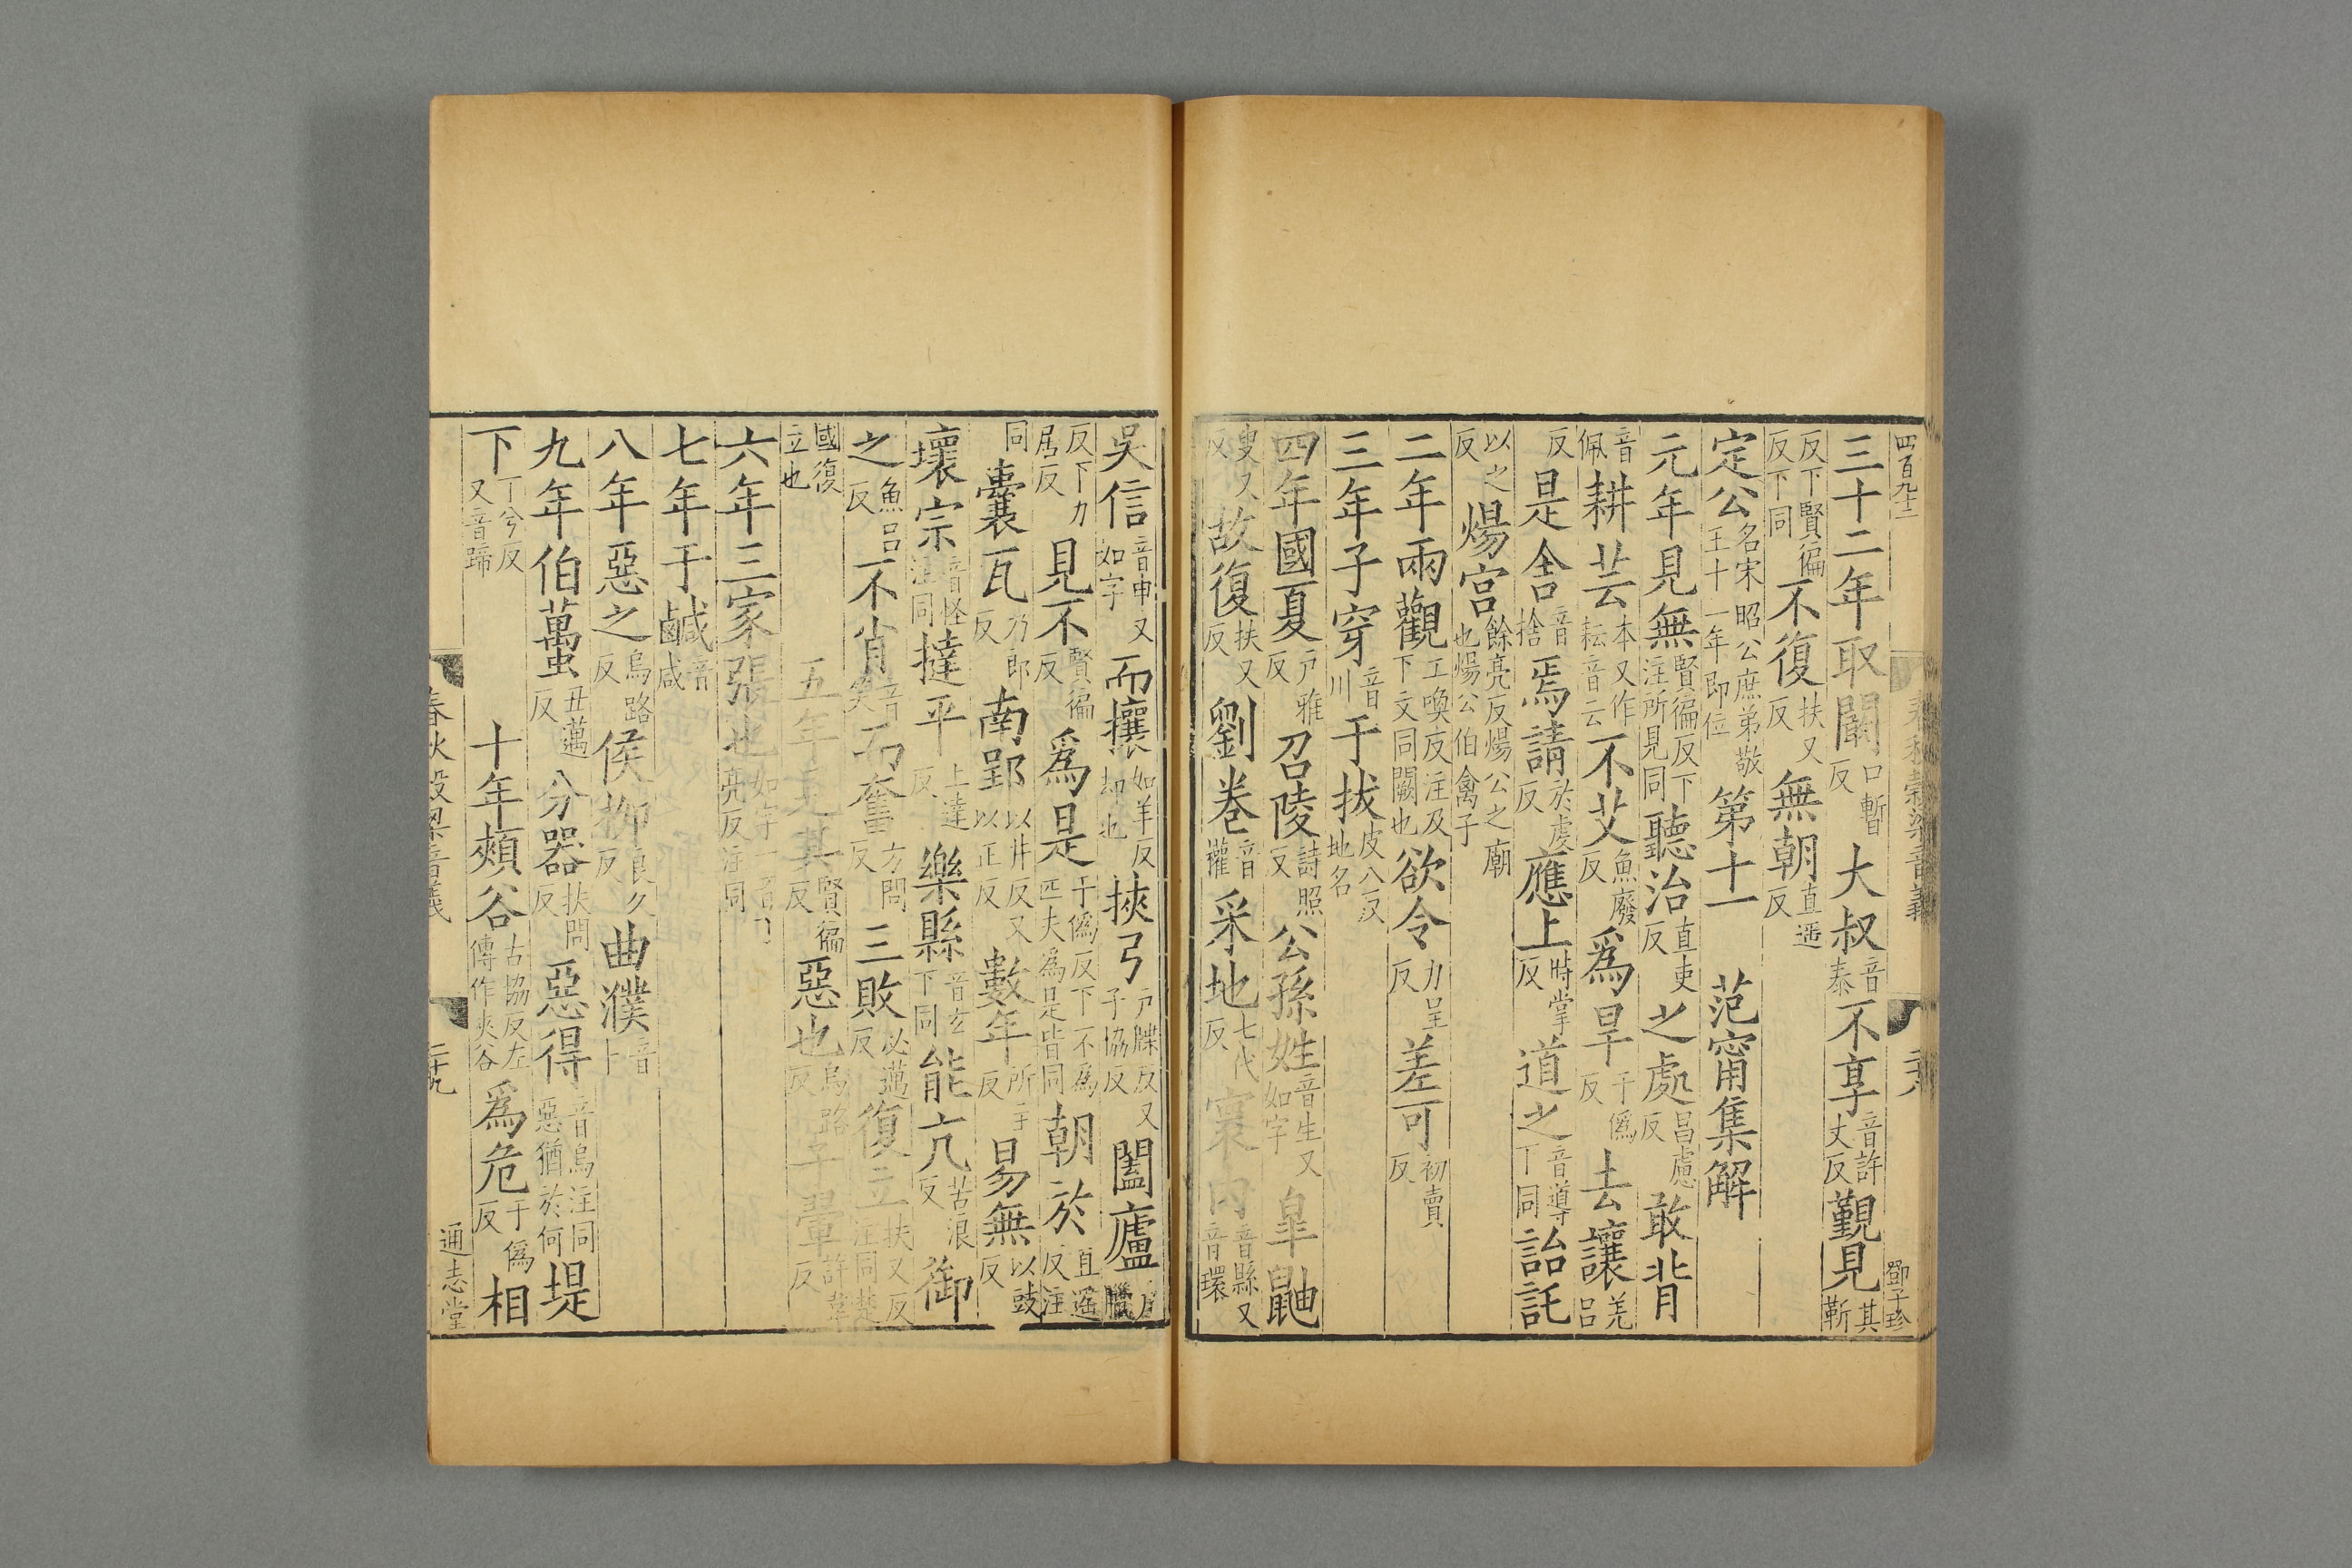 四百九十二
鄧子珍
三十二年取闞口暫反大叔音泰不享音許丈反覲見其靳
反下賢徧反下同不復扶又反無朝直遥反
定公名宋昭公庶弟敬王十一年即位第十一 范甯集解
元年見無賢徧反下注所見同聽治直吏反之處昌慮反敢背
音佩耕芸本又作耘音云不艾魚廢反為旱于偽反去讓羌呂
反是舍音捨焉請於虔反應上時掌反道之音導下同詒託
以之反煬宮餘亮反煬公之廟也煬公伯禽子
二年兩觀工喚反注及下文同闕也欲令力呈反差可初賣反
三年子穿音川于拔皮八反地名
四年國夏戶雅反召陵詩照反公孫姓音生又如字皐鼬
叟又反故復扶又反劉卷音權采地七代反寰内音縣又音環
吳信音申又如字而攘如羊反却也挾弓戶牒反又子協反闔廬戶臘
反下力居反見不賢徧反為是于偽反下不為匹夫為是皆同朝於直遥反注
同囊瓦乃郎反南郢以井反又以正反數年所主反易無以豉反
壞宗音怪注同撻平上達反樂縣音玄下同能亢苦浪反御
之魚呂反不肖音笑而奮方問反三敗必邁反復立扶又反注同楚
國復立也 五年 賢徧反惡也烏路反 子翬許韋反
六年三家張也如字一音丁亮反注同
七年于鹹音咸
八年惡之烏路反侯柳良久反曲濮音卜
九年伯蠆丑邁反分器扶問反惡得音烏注同惡猶於何堤
下丁兮反又音蹄 十年頰谷古協反左傳作夾谷為危于偽反相
春秋穀梁音義 二十九 通志堂